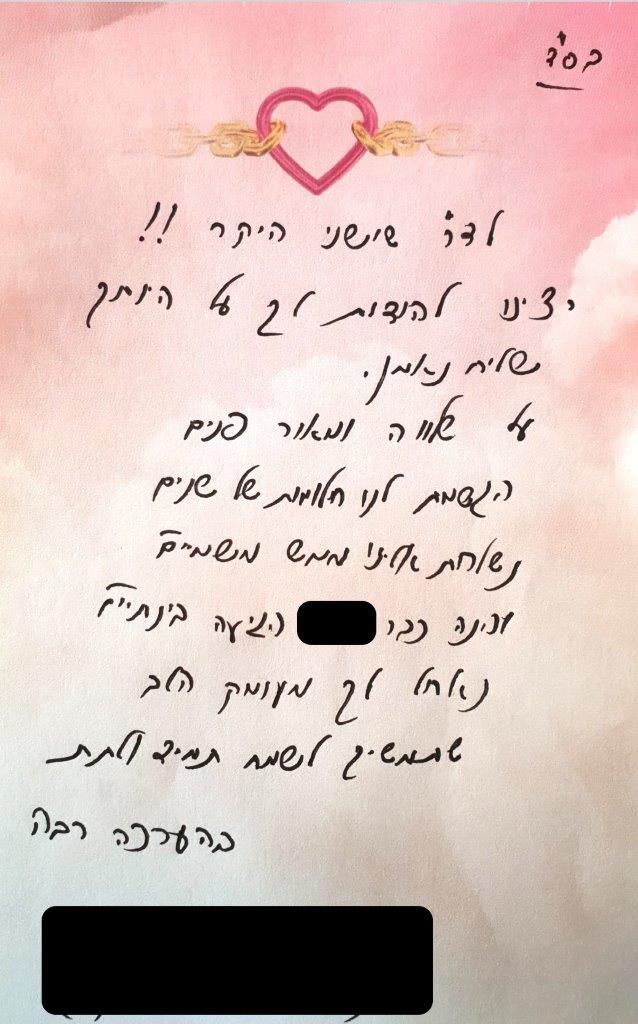 בס"ד
לד"ר שישני היקר !!
רצינו להודות לך על היותך
שליח נאמן.
על שלווה ומאור פנים
הגשמת לנו חלומות של שנים
נשלחת אלינו ממש משמיים
וכבר הגיעה בינתיים
נאחל לך מעומק הלב
שתמשיך לשמח תמיד ולתת
בהערכה רבה